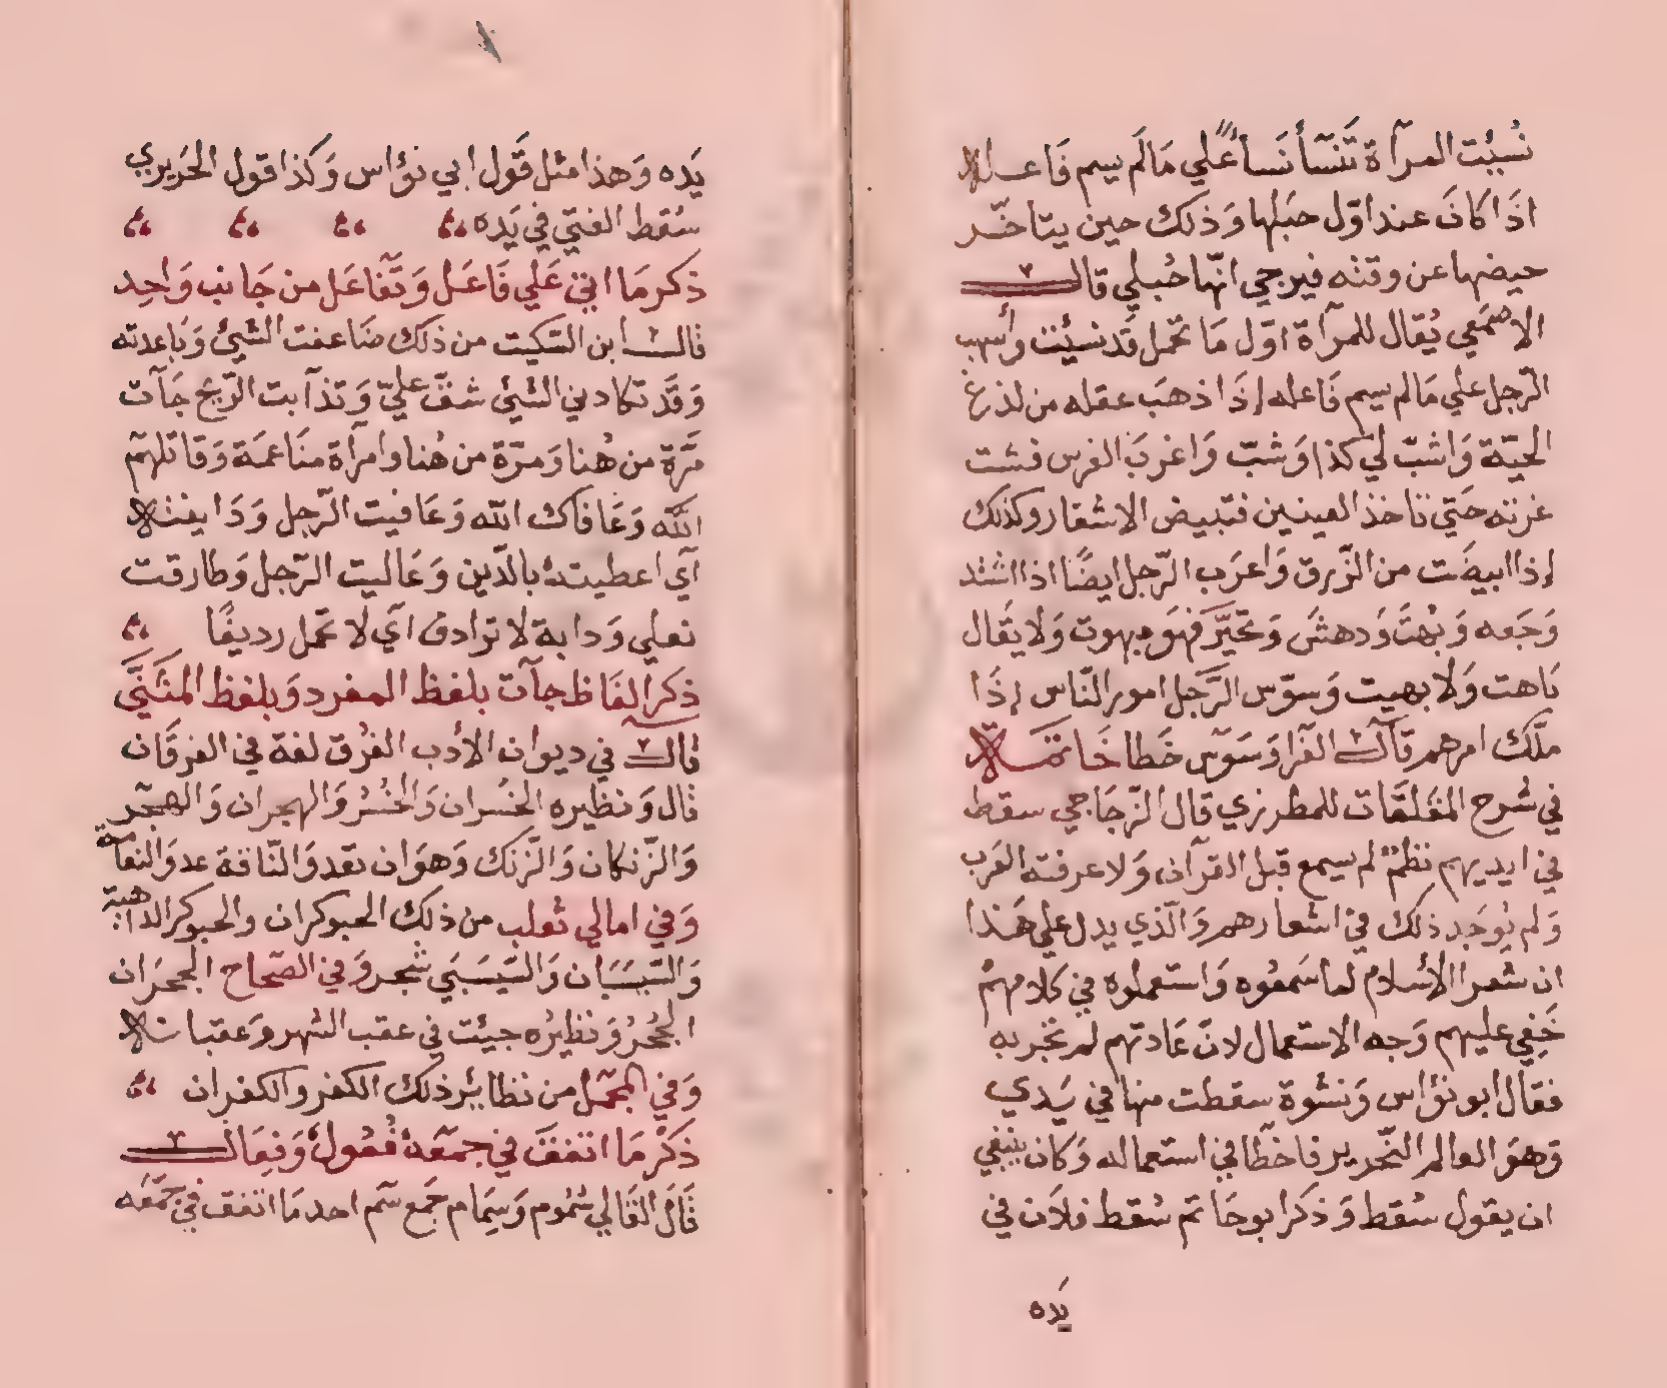 نُسِئت المرآة تَنَسَّأ نَسأً علي مَا لَم يسم فَاعله
اذَا كانَ عند اوّل حبَلها وَذلك حين يتاخّر
حيضها عن وقته فيرجي انّها حُبلي قال
الاصمَعي يُقال للمرآة اوّل مَا تحمل قَد نسئت وأسهب
الرّجل علي مَا لم يسم فَاعله إذَا ذهبَ عقله من لذغ
الحيّة وَاشبّ لي كذا وَشبّ وَاغربَ الفرس فشت
غرته حَتي تاخذ العينين فتبيض الاشفار وكذلك
إذا ابيضَت من الزّرق وَاغرَب الرّجل ايضًا اذا اشتد
وَجَعه وَبُهتَ وَدهشَ وَتحيَّر فهَو مبهوت وَلا يقَال
بَاهت وَلا بهيت وَسوّس الرَّجل امور النّاس إذَا
ملّك امرهم قآل الفَرا وَسَوّس خَطا خَاتمة
في شرح المقَامَات للمطرزي قال الزّجَاجي سقط
في ايديهم نظمٌ لم يسمع قبل القرآن وَلا عرفته العَرب
وَلم يُوجَد ذلكَ في اشعارهم وَالّذي يدل علي هَذا
ان شعرا الأسلام لما سَمعُوه وَاستعملوه في كلامهم
خَفِي عليهم وَجه الاستعمال لانَ عَادتهم لم تجر به
فقال ابو نؤاس وَنشوة سقطت منها في يَدي
وَهوَ العالم النّحرير فاخطَا في استعماله وَكان ينبغي
ان يقول سُقط وَذكر ابو حَاتم سُقط فلاَن في
يَده
يَده وَهذا مثل قَول ابي نؤاس وَكذا قول الحَريري
سُقط الفتي في يَده
ذكر مَا اتي عَلي فَاعَل وَتَفَاعَل من جَانب وَاحِد
قال ابن السّكيت من ذلك ضَاعفت الشيئ وَبَاعدته
وَقَد تكادني الشيئ شقَّ عليّ وَتذآبت الرّيح جَآت
مَرّة من هُنا وَمرّة من هُنا وامرآة منَاعَمة وَقاتلهم
الله وَعَافاك الله وَعَافيت الرّجل وَدَاينته
آي اعطيته بالدّين وَعَاليت الرّجل وَطارقت
نعلي وَدابة لا ترادف آي لا تحمل رديفًا
ذكر الفَاظ جآت بلفظ المفرد وَبلفظ المثَنَّي
قال في ديوان الأدب الفرُق لغة في الفرقَان
قال وَنظيره الخسُران وَالخُسر وَالهجران وَالهجر
وَالزّنكان وَالزّنك وَهوَ ان تعدو النّاقة عدو النعامة
وَفي امالي ثعلب من ذلك الحبوكران والحبوكر الداهية
وَالسّيسَبَان وَالسّيسَبَي شجر وَفي الصّحاح الجحرَان
الجُحرُ وَنظيرُه جيئت في عقب الشهر وَعقبانه
وَفي المجمَل من نظائر ذلك الكفر والكفران
ذكَر مَا اتفقَ في جمعَه فُعُول وَفِعَال
قَالَ القَالي سُموم وَسِمَام جَمع سَم احد مَا اتفق في جَمعَه